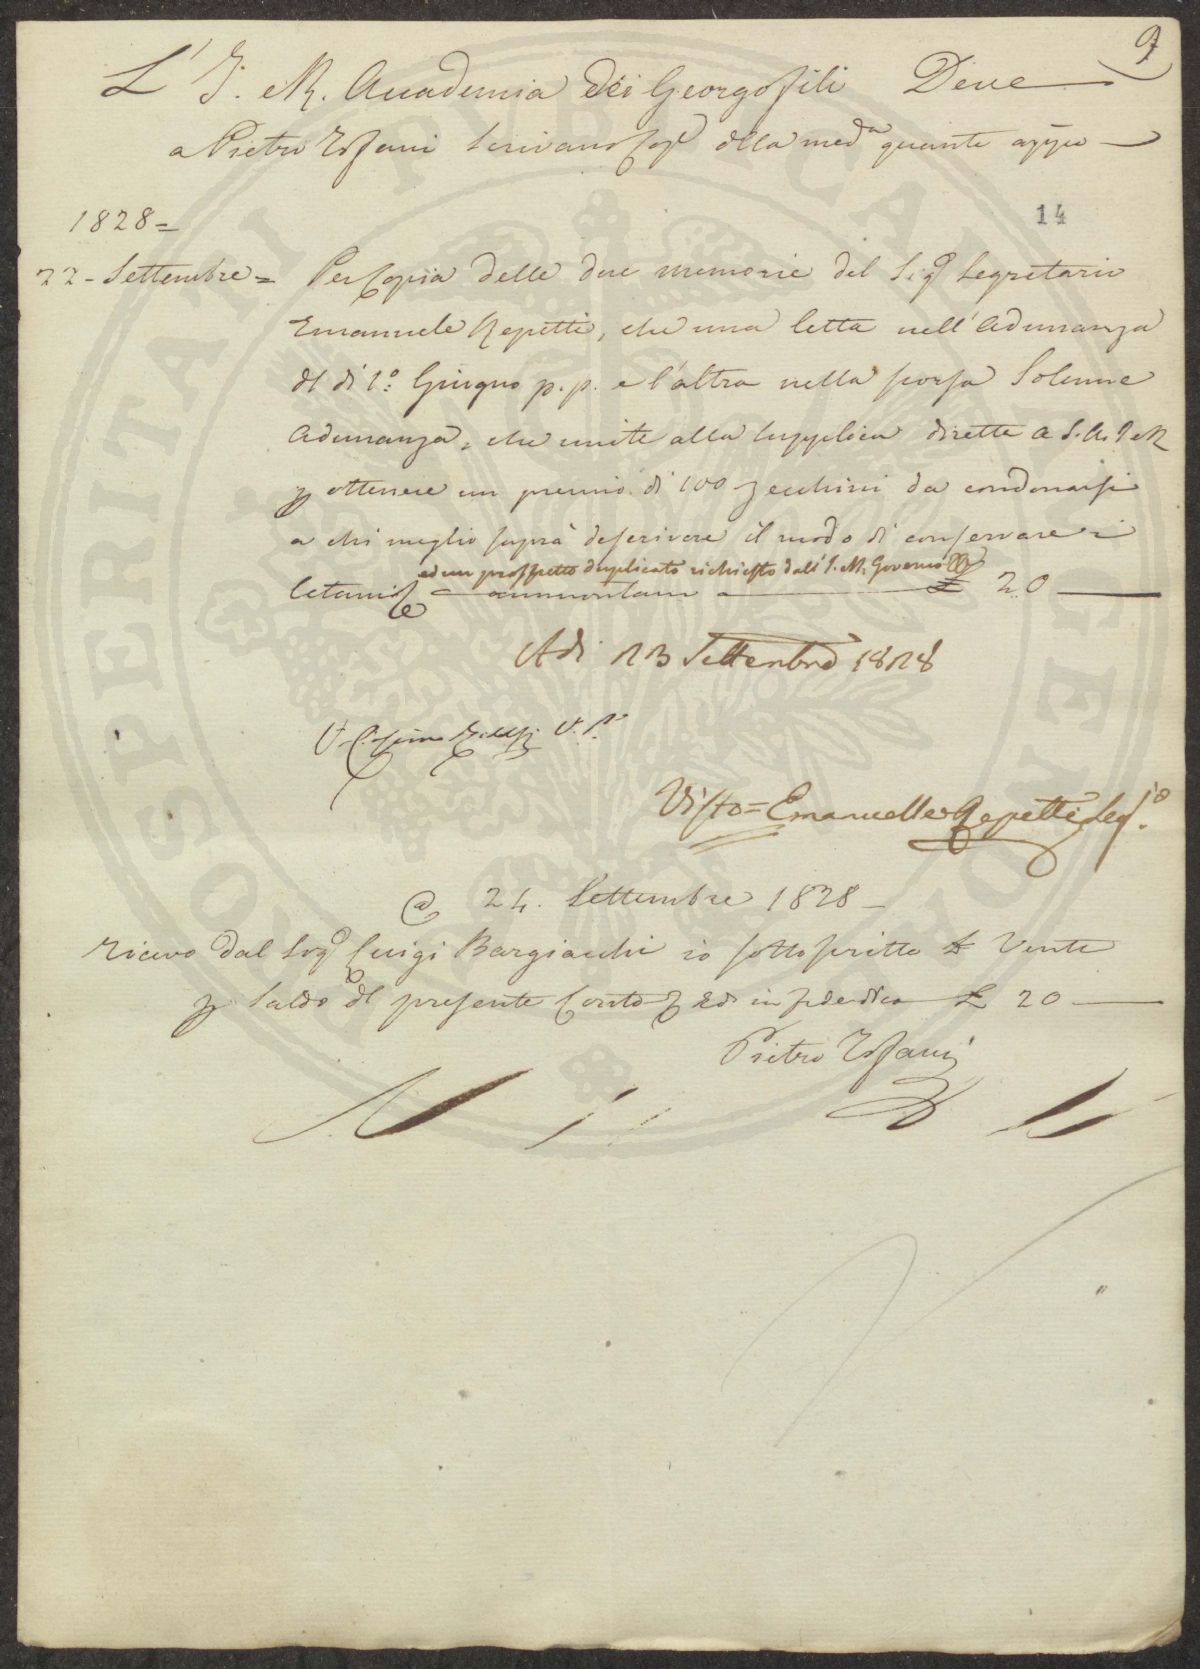 9
L' I. R. Accademia dei Georgofili Deve
a Pietro Scrivano della med.a quanto app.o
14
1828 =
22 - Settembre = Per Copia delle due memorie del Sig.e Segretario
Emanuele Repetti, che una letta nell' Adunanza
del dì 1.o Giugno p. p. e l'altra nella scorsa Solenne
Adunanza, che unite alla Supplica dirette a S. A. I e R
p ottenere un premio di 100 zecchini da condonarsi
a chi meglio saprà descrivere il modo di conservare i
ed un prospetto duplicato richiesto dall' I. R. Governo
letami ammontan £ 20
Adi 23 Settembre 1828
V. Cosimo Ridolfi V. P.e
Visto = Emanuelle Repetti Seg.io
a 24. Settembre 1828 -
Ricevo dal Sig.e Luigi Bargiacchi io sottoscritto £ Venti
p Saldo del presente Conto Ed in fede dico £ 20
Pietro